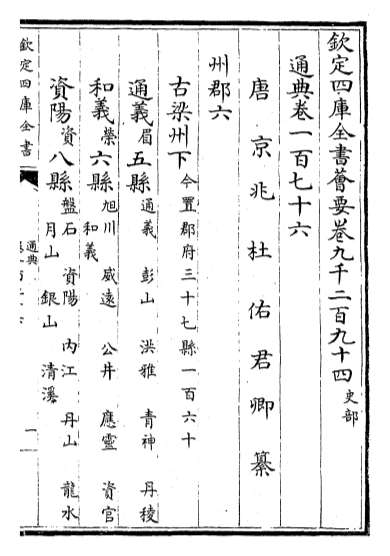 欽定四庫全書薈要卷九千二百九十四 史部
通典卷一百七十六
唐京兆杜佑君卿纂
州郡六
古梁州下 今置郡府三十七縣一百六十
通義 眉 五縣 通義 彭山 洪雅 青神 丹稜
和義 榮 六縣 旭川 威遠 公井 應靈 資官 和義
資陽 資 八縣 盤石 資陽 内江 丹山 龍水 月山 銀山 清溪
欽定四庫全書
通典
一